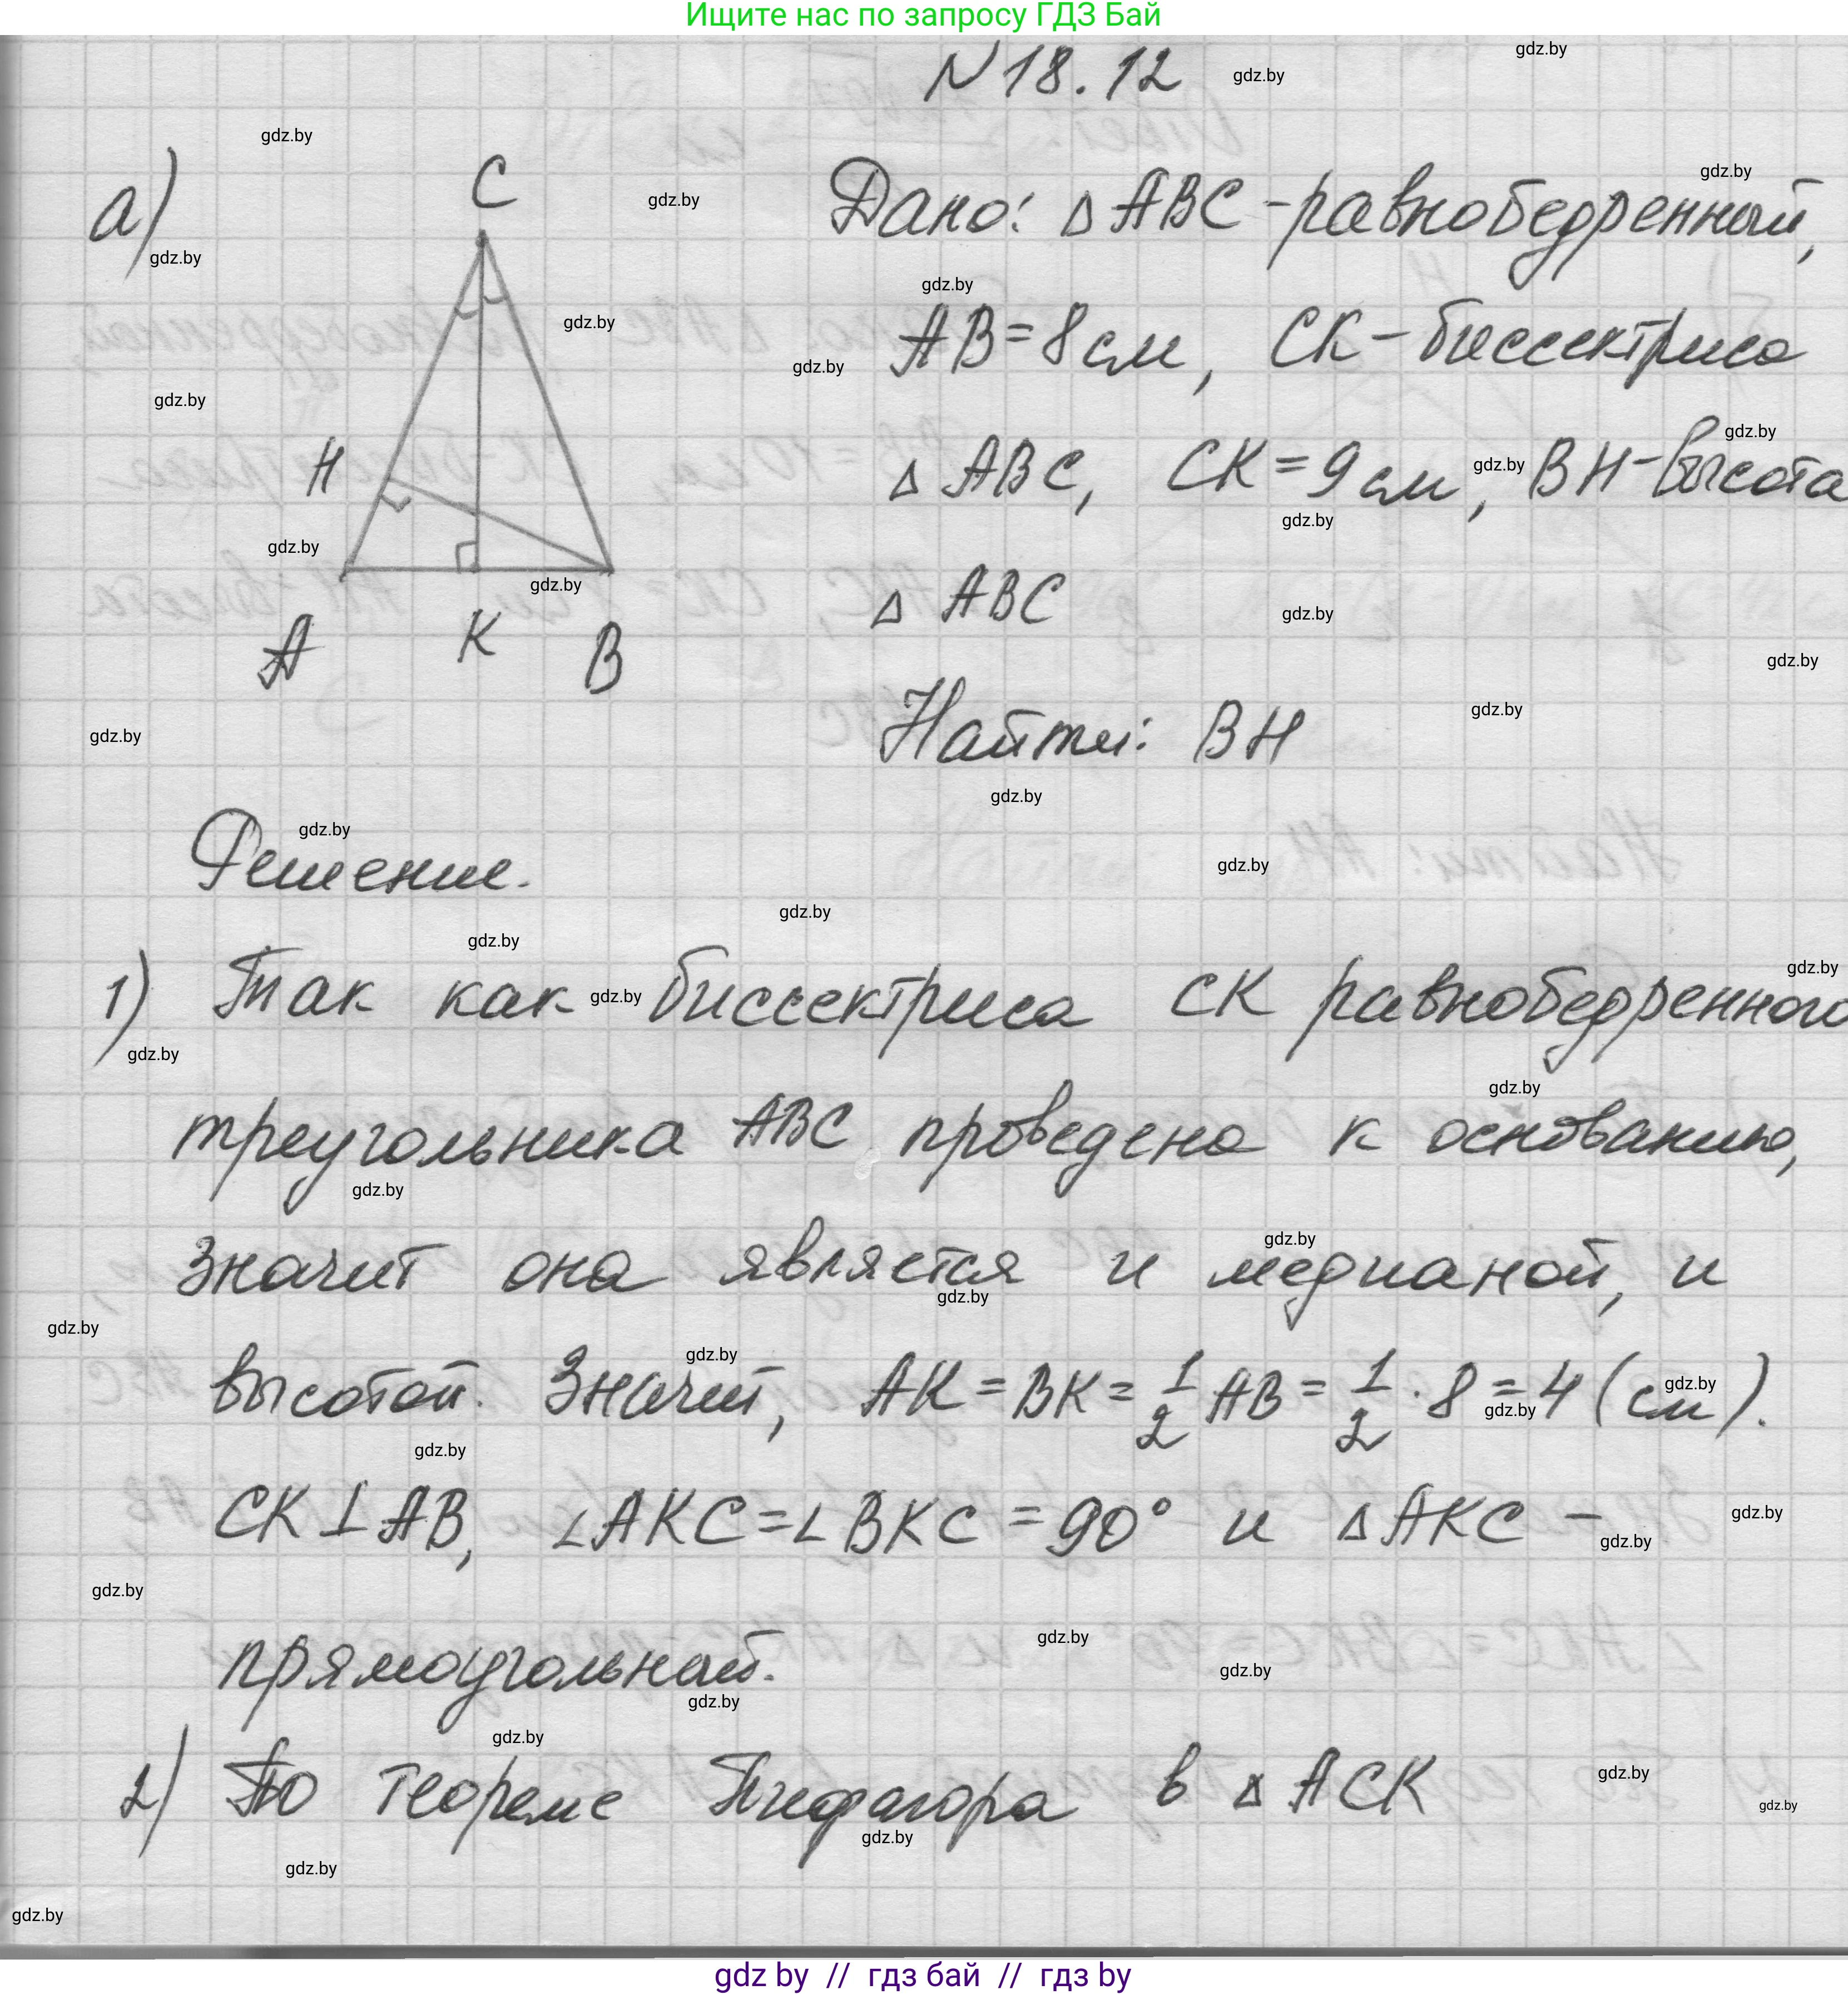 Ищите нас по запросу ГДЗ Бай
N18.12
а)
C
H
A K B
Дано: △ABC - равнобедренный,
AB = 8 см, CK - биссектриса
△ABC, CK = 9 см, BH - высота
△ABC
Найти: BH
Решение.
1) Так как биссектриса CK равнобедренного
треугольника ABC проведена к основанию,
значит она является и медианой, и
высотой. Значит, AK = BK = 1/2 AB = 1/2 · 8 = 4 (см).
CK ⊥ AB, ∠AKC = ∠BKC = 90° и △AKC -
прямоугольный.
2) По теореме Пифагора в △ACK
gdz by // гдз бай // гдз by